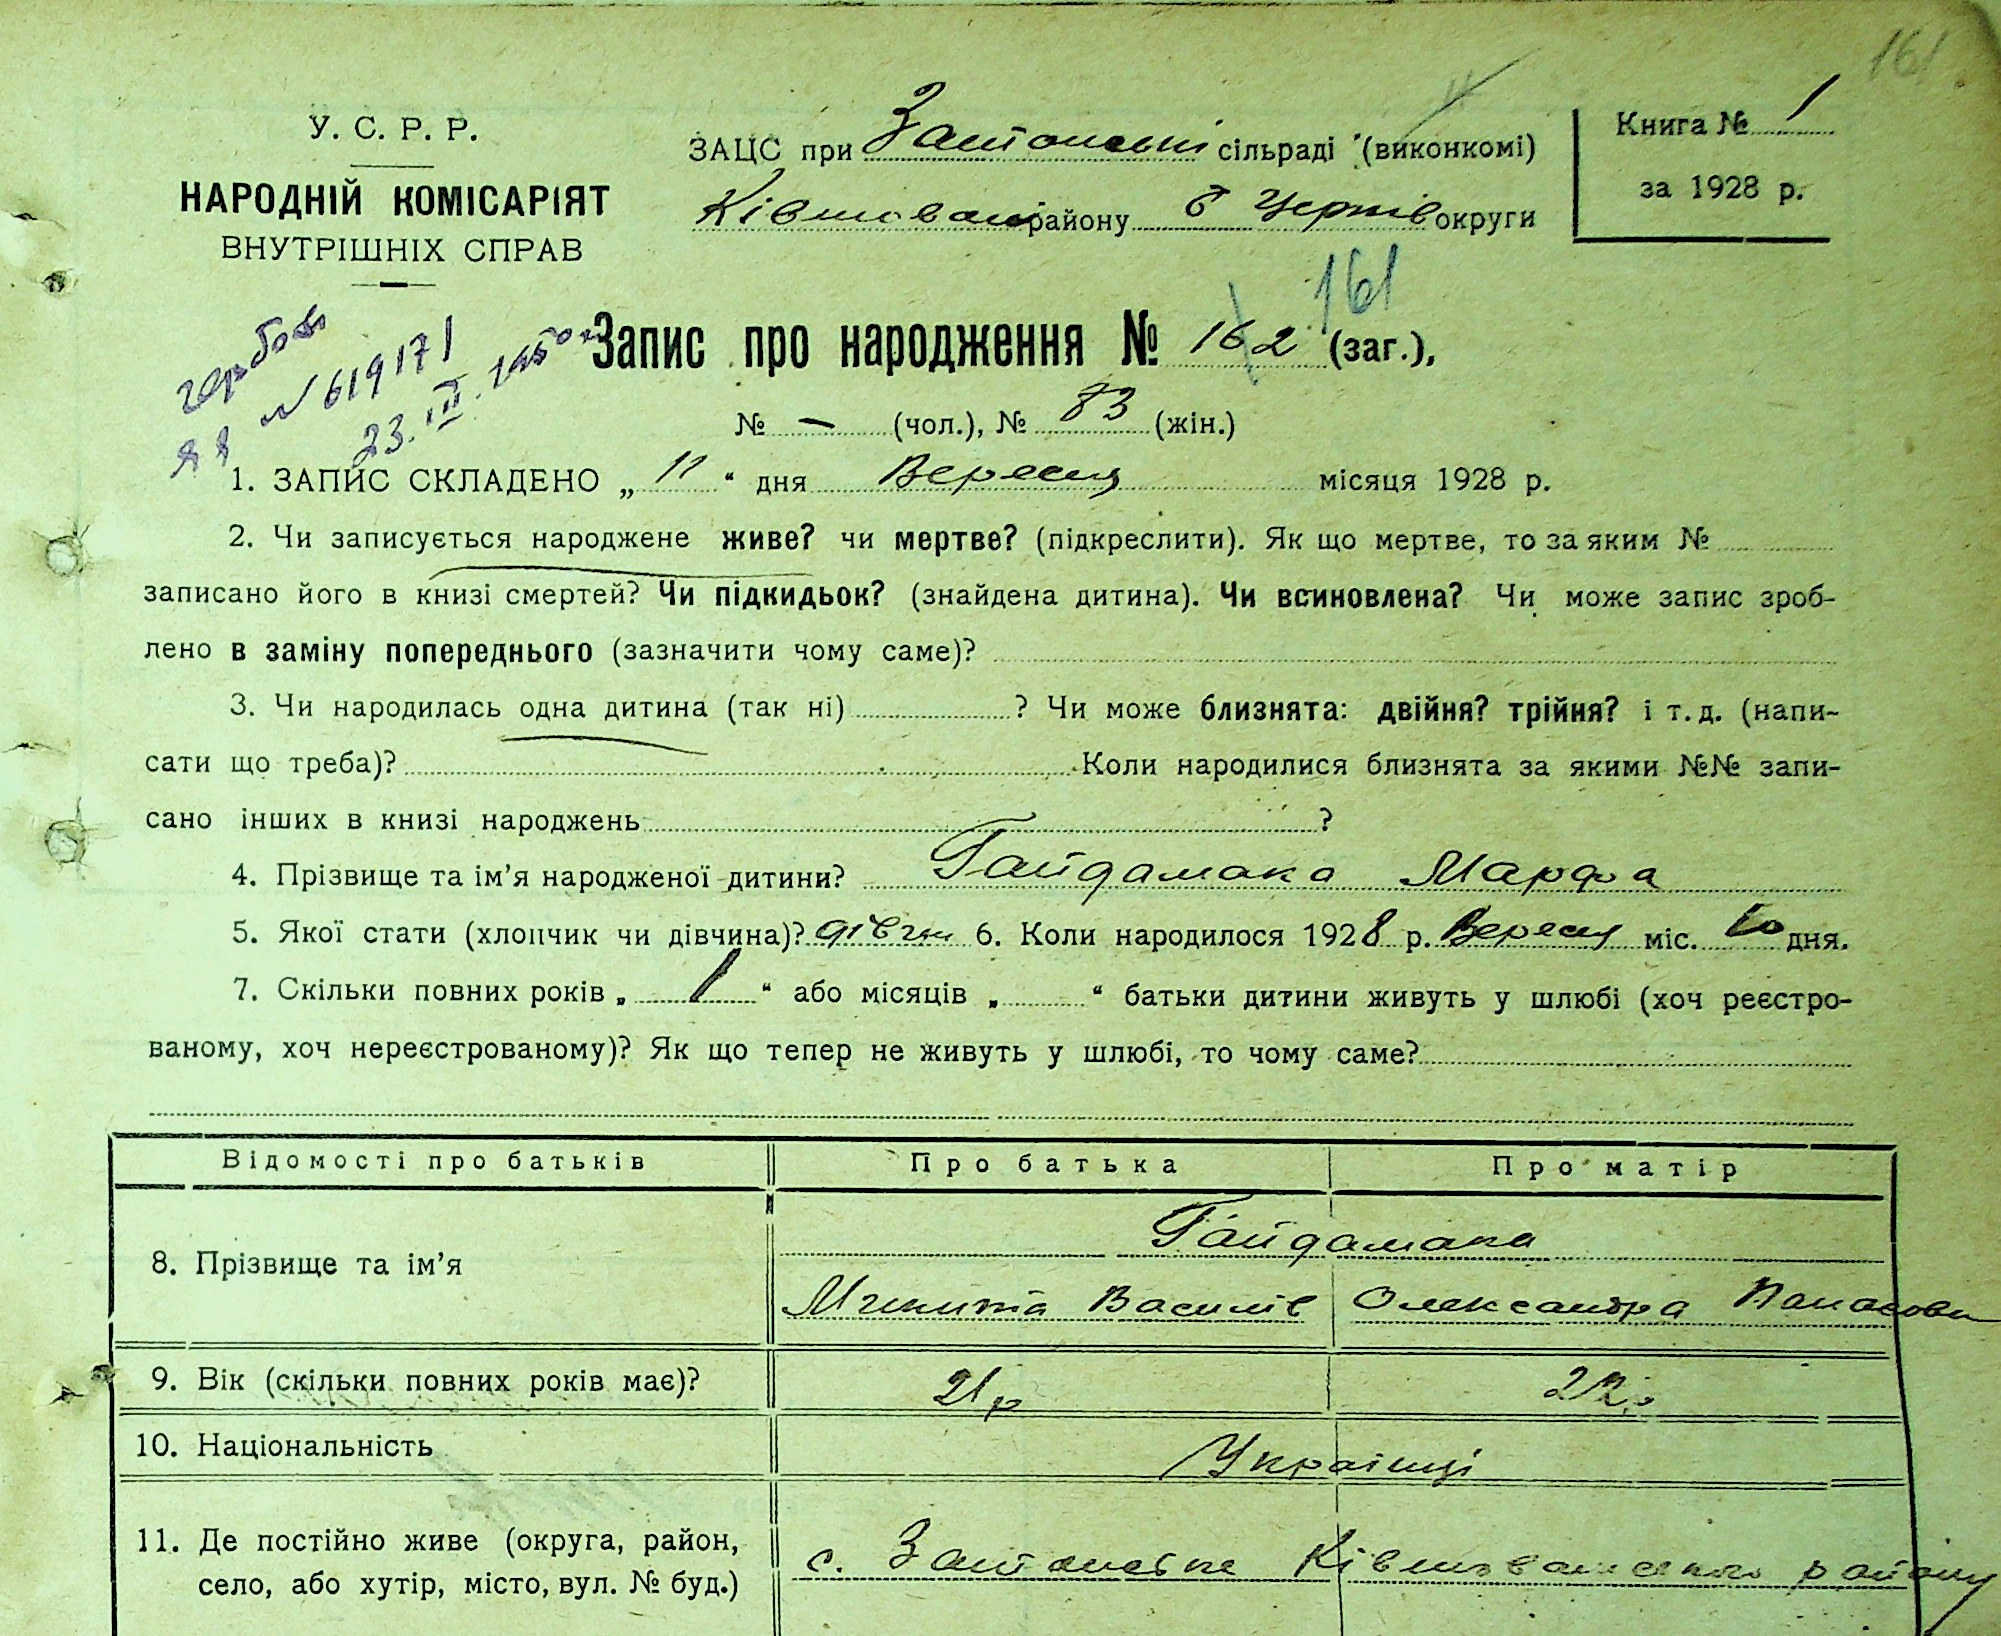 161
У. С. Р. Р.
НАРОДНІЙ КОМІСАРІЯТ
ВНУТРІШНІХ СПРАВ
ЗАЦС при сільраді (виконкомі)
району б Чернів округи
Книга № 1
за 1928 р.
гербов
№ 619171
23. III. 1950
161
Запис про народження № 162 (заг.),
№ — (чол.), № 83 (жін.)
1. ЗАПИС СКЛАДЕНО „ 11 “ дня Вересня місяця 1928 р.
2. Чи записується народжене живе? чи мертве? (підкреслити). Як що мертве, то за яким №
записано його в книзі смертей? Чи підкидьок? (знайдена дитина). Чи всиновлена? Чи може запис зроб-
лено в заміну попереднього (зазначити чому саме)?
3. Чи народилась одна дитина (так ні) ? Чи може близнята: двійня? трійня? і т. д. (напи-
сати що треба)? Коли народилися близнята за якими №№ запи-
сано інших в книзі народжень ?
4. Прізвище та ім’я народженої дитини? Гайдамака Марфа
5. Якої стати (хлопчик чи дівчина)? дівчин 6. Коли народилося 1928 р. Вересня міс. 10 дня.
7. Скільки повних років „ 1 “ або місяців „ “ батьки дитини живуть у шлюбі (хоч реєстро-
ваному, хоч нереєстрованому)? Як що тепер не живуть у шлюбі, то чому саме?
Відомості про батьків Про батька Про матір
8. Прізвище та ім’я Гайдамака
Микита Василів Олександра Панасовн
9. Вік (скільки повних років має)? 21 р 22 р
10. Національність Українці
11. Де постійно живе (округа, район,
село, або хутір, місто, вул. № буд.)
с. району